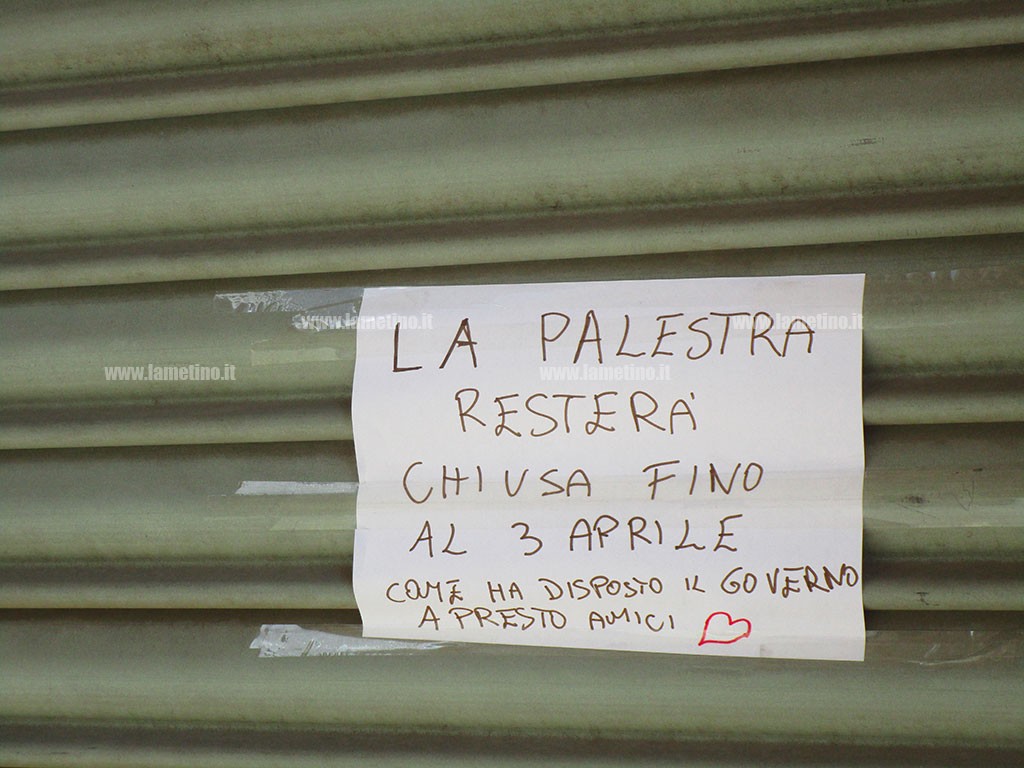 www.lametino.it
www.lametino.it
www.lametino.it
www.lametino.it
LA PALESTRA
RESTERA'
CHIUSA FINO
AL 3 APRILE
COME HA DISPOSTO IL GOVERNO
A PRESTO AMICI